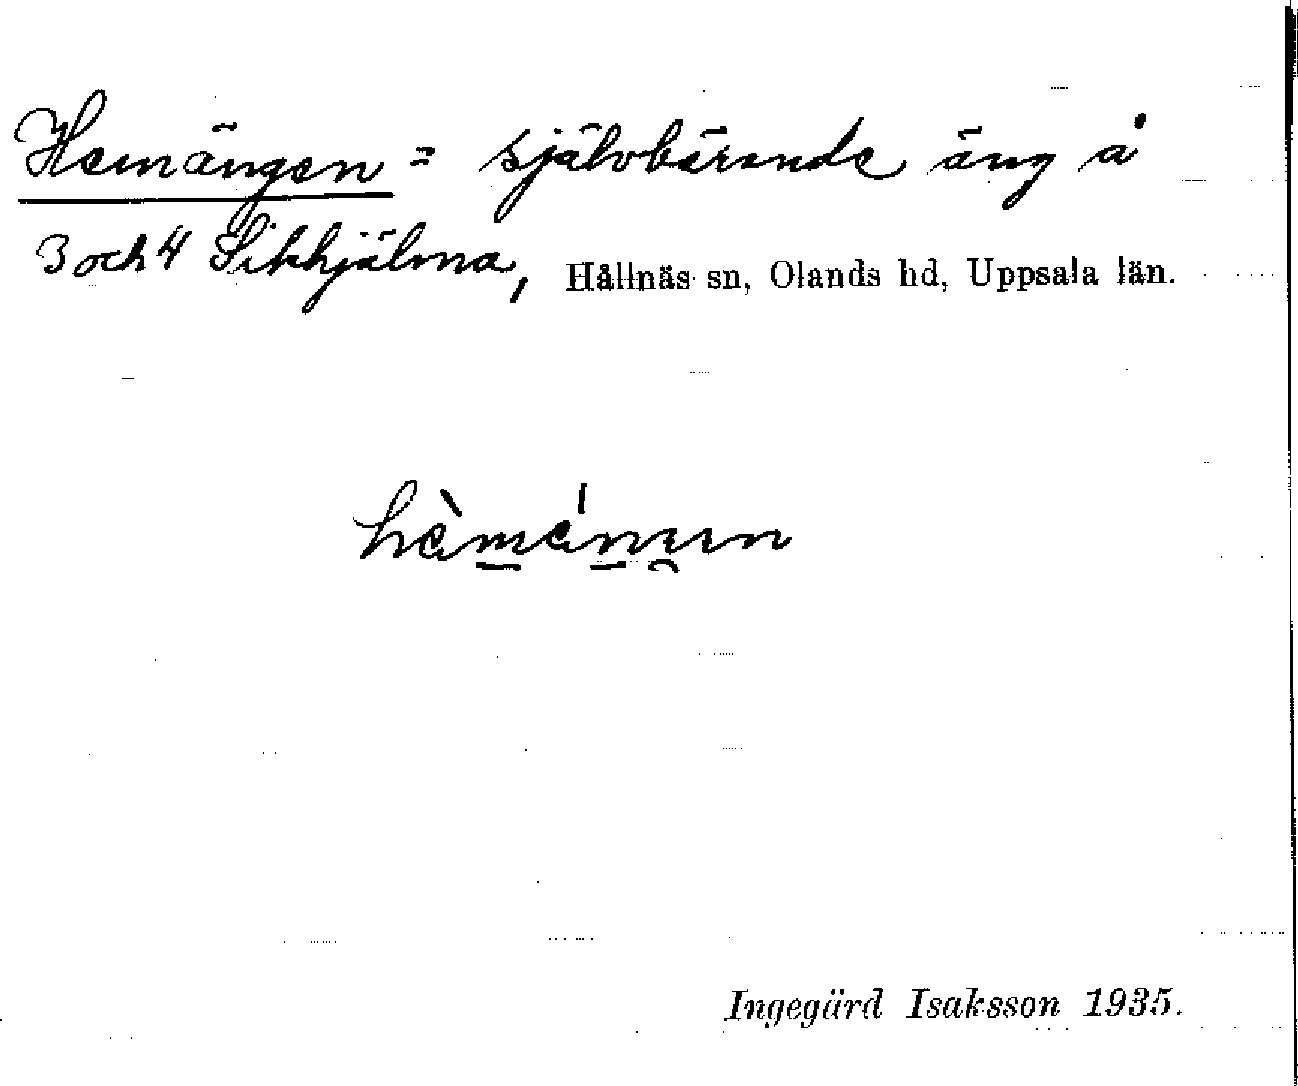 Hemängen = självbärande äng å
3 och 4 Sikhjälma, Hållnäs sn, Olands hd, Uppsala län.
Ingegärd Isaksson 1935.